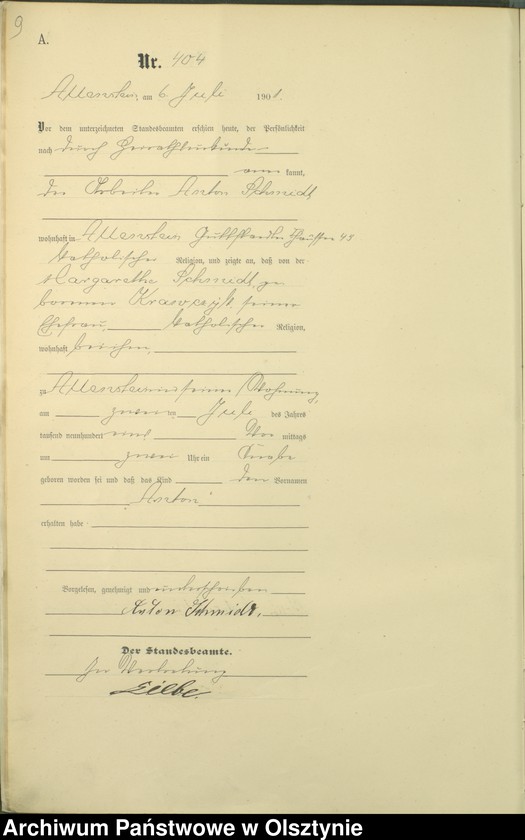 9
A.
Nr. 404
Allenstein, am 6 Juli 1901.
Vor dem unterzeichneten Standesbeamten erschien heute, der Persönlichkeit
nach durch Heirathsurkunde
kannt,
der Arbeiter Anton Schmidt
wohnhaft in Allenstein 43
katholischer Religion, und zeigte an, daß von der
Margarethe Schmidt, ge-
borenen seiner
Ehefrau, katholischer Religion,
wohnhaft bei ihm,
zu Allenstein in seiner Wohnung,
am zweiten Juli des Jahres
tausend neunhundert eins Vor mittags
um zwei Uhr ein Knabe
geboren worden sei und daß das Kind den Vornamen
Anton
erhalten habe
Vorgelesen, genehmigt und unterschrieben
Anton Schmidt.
Der Standesbeamte.
In Vertretung
Archiwum Państwowe w Olsztynie